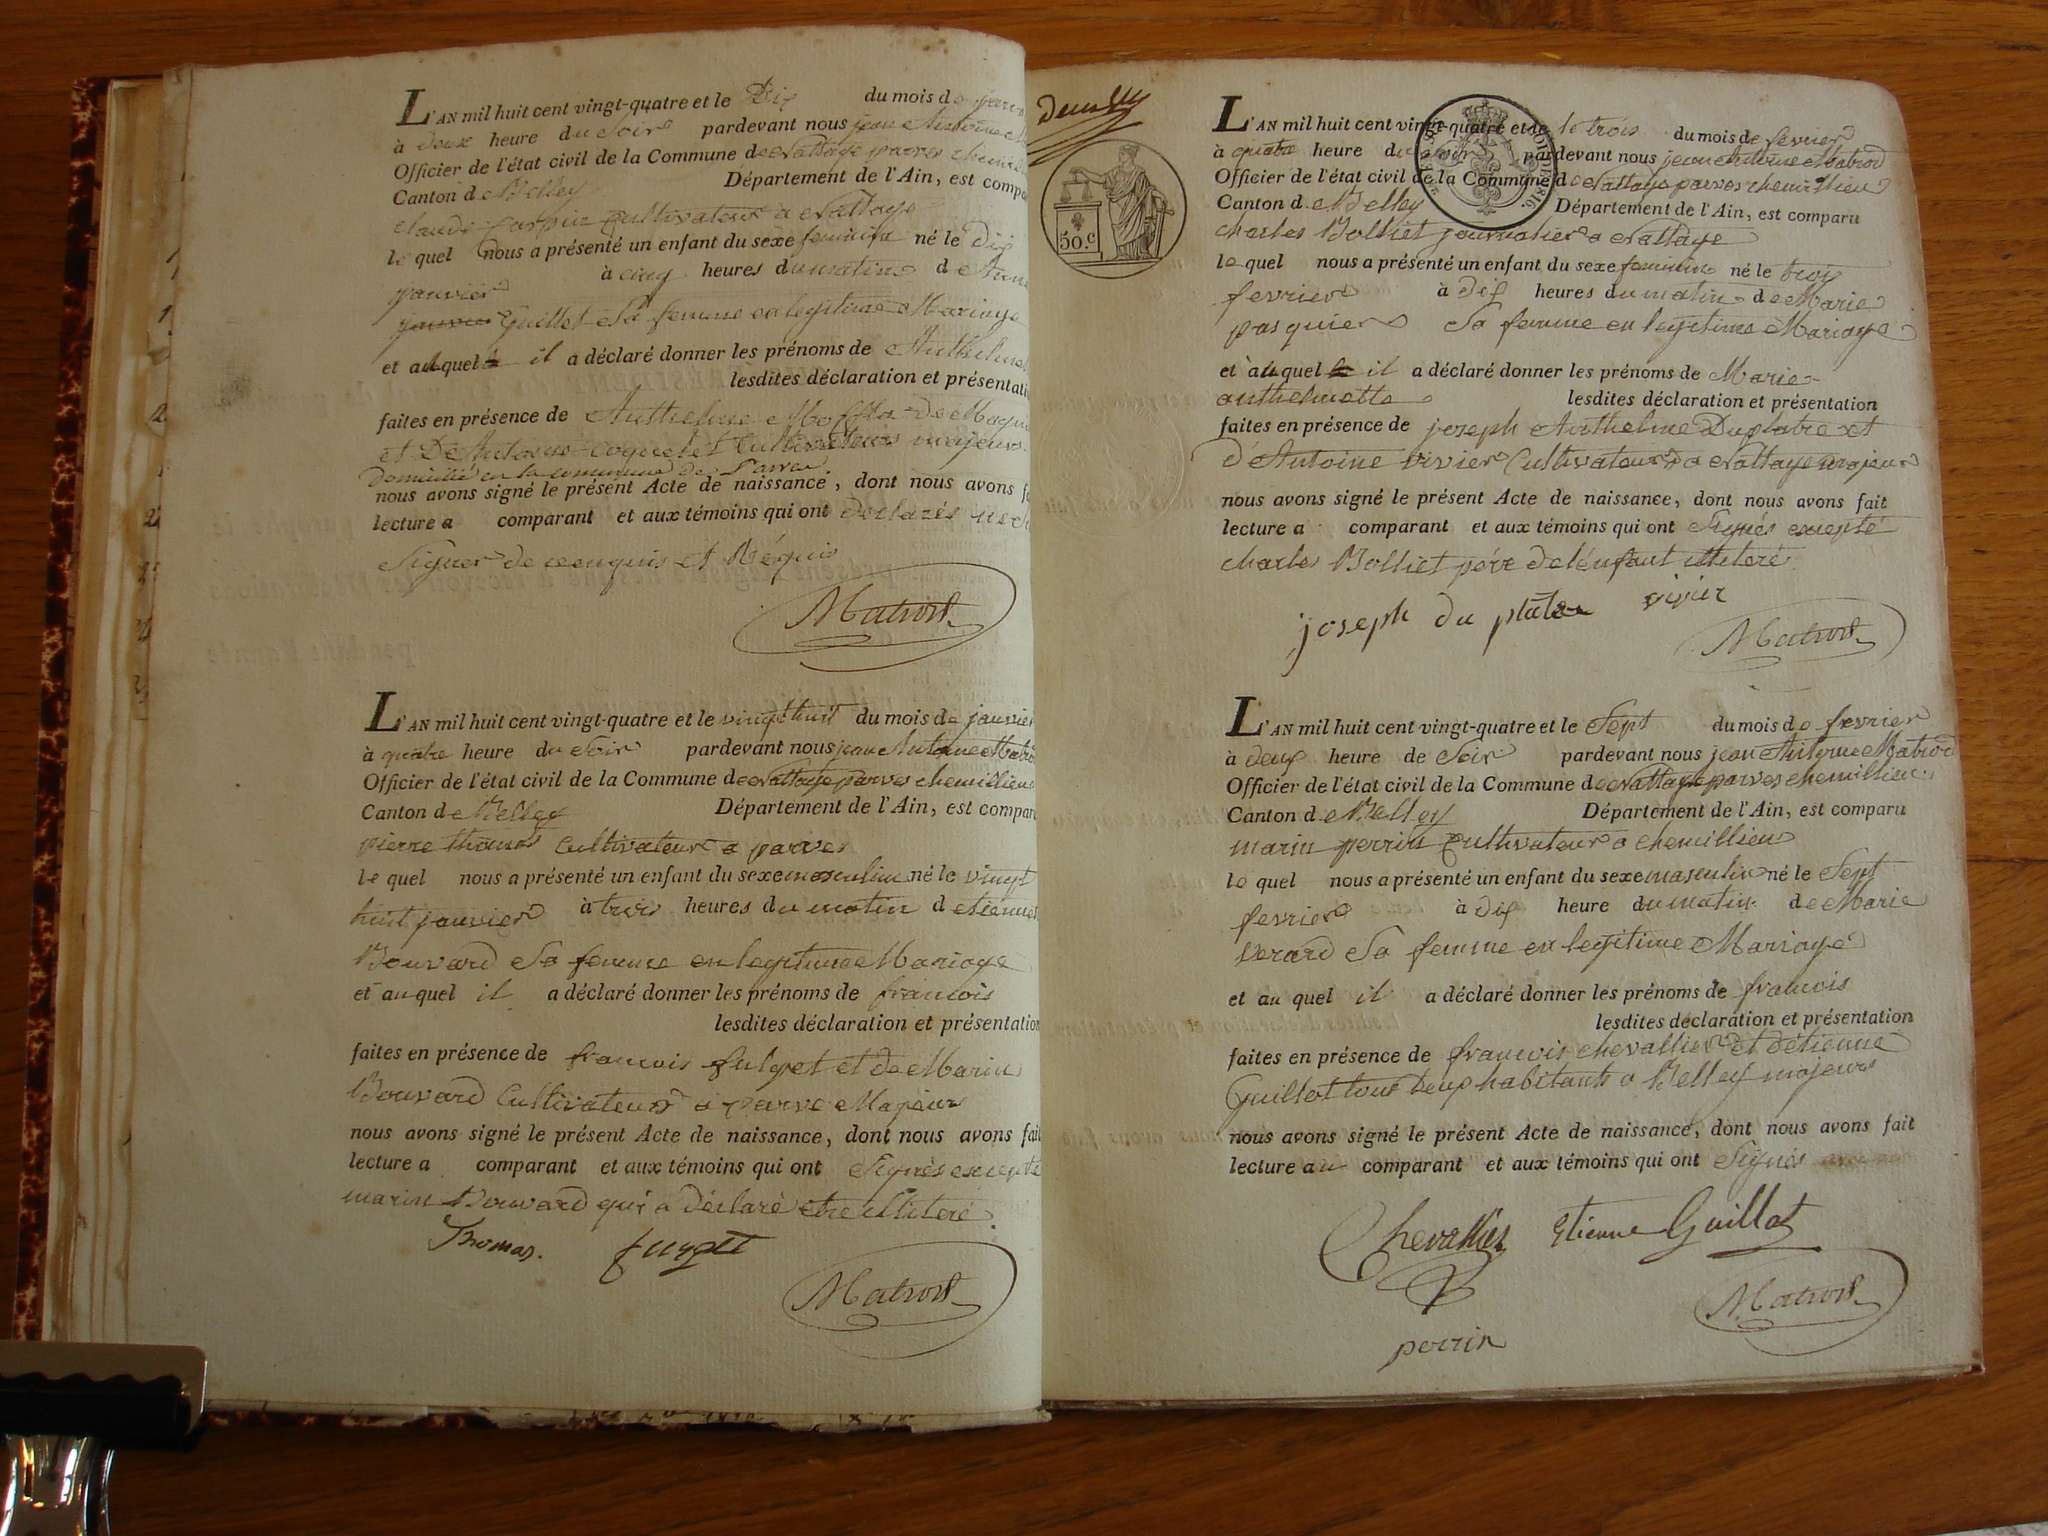 L'AN mil huit cent vingt-quatre et le Dix du mois de
à deux heure du Soir pardevant nous jean Antoine
Officier de l'état civil de la Commune de Nattage parves
Canton de Belley Département de l'Ain, est
claude cultivateur a Nattage
le quel nous a présenté un enfant du sexe feminin né le dix
janvier à cinq heures du matin d
Guillet Sa femme en legitime Mariage
et au quel il a déclaré donner les prénoms de
lesdites déclaration et
faites en présence de Anthelme de
et De Antoine Coquet et Cultivateurs majeurs
Domicilié en la commune de Parve
nous avons signé le présent Acte de naissance, dont nous avons
lecture a comparant et aux témoins qui ont declarés
Signer de ce enquis et Réquis
Matrod
L'AN mil huit cent vingt-quatre et le vingt huit du mois de janvier
à quatre heure du Soir pardevant nous jean Antoine
Officier de l'état civil de la Commune de Nattage parves chemillieu
Canton de Belley Département de l'Ain, est
pierre thomas Cultivateur a parves
le quel nous a présenté un enfant du sexe masculin né le vingt
huit janvier à trois heures du matin d etiennette
Bouvard Sa femme en legitime Mariage
et au quel il a déclaré donner les prénoms de francois
lesdites déclaration et présentation
faites en présence de francois fulget et de Marin
Bouvard Cultivateur a parve Majeurs
nous avons signé le présent Acte de naissance, dont nous avons fait
lecture a comparant et aux témoins qui ont Signés excepté
marin Bouvard qui a déclaré etre illiteré
Thomas. furget
Matrod
50.c
L'AN mil huit cent vingt-quatre et le le trois du mois de fevrier
à quatre heure du soir pardevant nous jean Antoine Matrod
Officier de l'état civil de la Commune de Nattage parves chemillieu
Canton de Belley Département de l'Ain, est comparu
charles Bolliet journalier a Nattage
le quel nous a présenté un enfant du sexe feminin né le trois
fevrier à dix heures du matin de Marie
pasquier Sa femme en legitime Mariage
et au quel il a déclaré donner les prénoms de Marie
anthelmette lesdites déclaration et présentation
faites en présence de joseph Anthelme Duplatre et
d'Antoine vivier Cultivateur a Nattage majeur
nous avons signé le présent Acte de naissance, dont nous avons fait
lecture a comparant et aux témoins qui ont Signés excepté
charles Bolliet pére de l'énfant illiteré
joseph du platre vivier
Matrod
L'AN mil huit cent vingt-quatre et le Sept du mois de fevrier
à deux heure de Soir pardevant nous jean Antoine Matrod
Officier de l'état civil de la Commune de Nattage parves chemillieu
Canton de Belley Département de l'Ain, est comparu
marin perrin Cultivateur a chemillieu
le quel nous a présenté un enfant du sexe masculin né le Sept
fevrier à dix heure du matin de Marie
verard Sa femme en legitime Mariage
et au quel il a déclaré donner les prénoms de francois
lesdites déclaration et présentation
faites en présence de francois chevallier et d'étienne
Guillot tous deux habitants a Belley majeurs
nous avons signé le présent Acte de naissance, dont nous avons fait
lecture au comparant et aux témoins qui ont Signés
Chevallier Etienne Guillot
Matrod
perrin